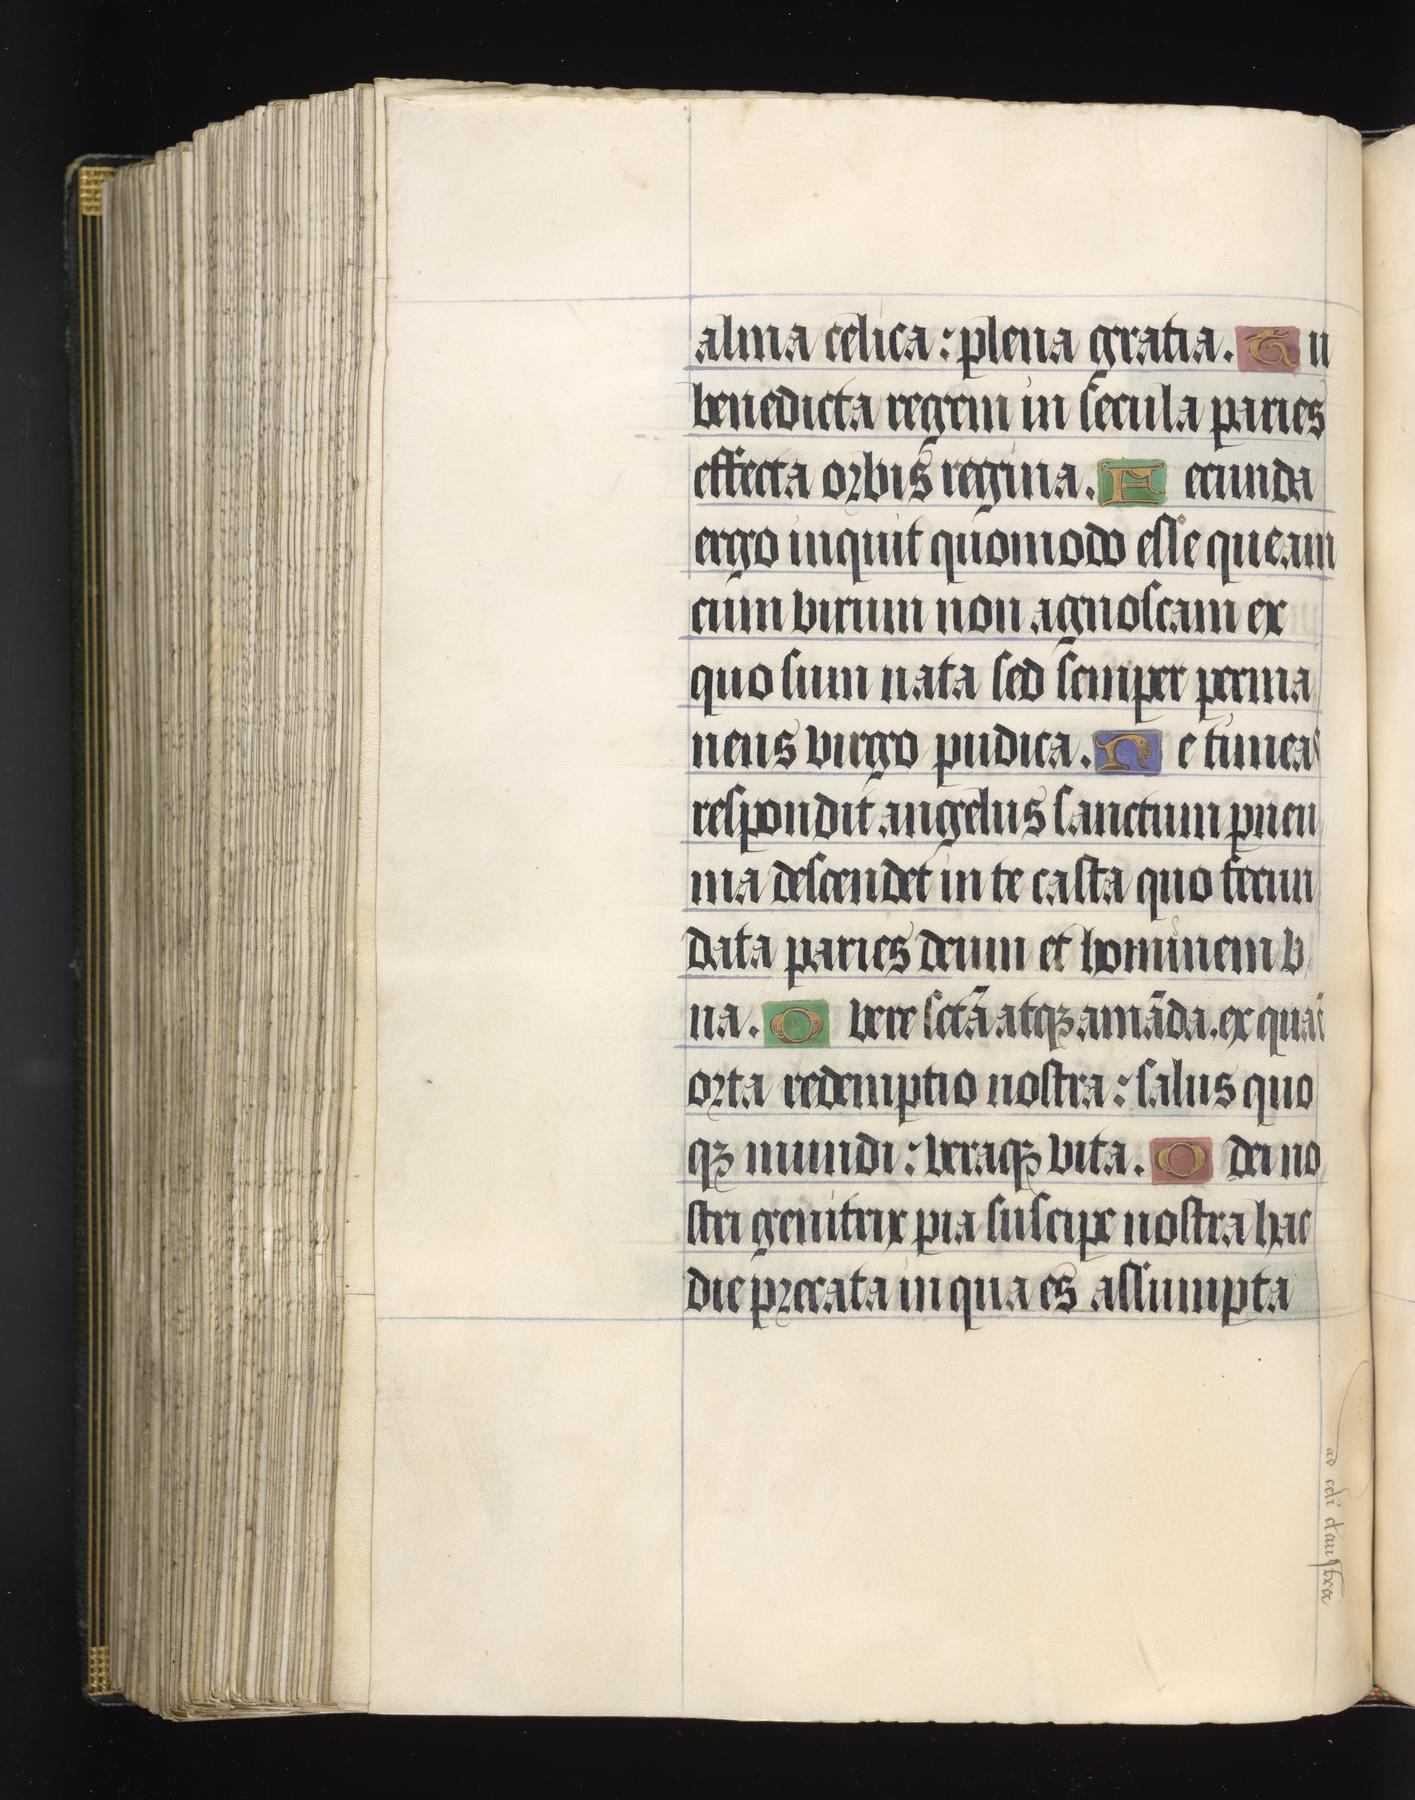 alma celica : plena gratia . Tu
benedicta regem in secula paries
effecta orbis regina . Fecunda
ergo inquit quomodo esse queam
cum virum non agnoscam ex
quo sum nata sed semper perma
nens virgo pudica . Ne timeas
respondit angelus sanctum pneu
ma descendet in te casta quo fecun
data paries deum et hominem v
na . O vere sctã atqꝫ amãda . ex qua ẽ
orta redemptio nostra : salus quo
qꝫ mundi : veraqꝫ vita . O dei no
stri genitrix pia suscipe nostra hac
die precata in qua es assumpta
ad celi